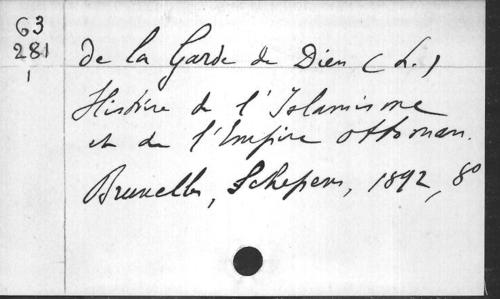 63
281
1
de la Garde de Dieu (L.)
Histoire de l'Islamisme
et de l'Empire ottoman.
Bruxelles, Schepens, 1892, 8º